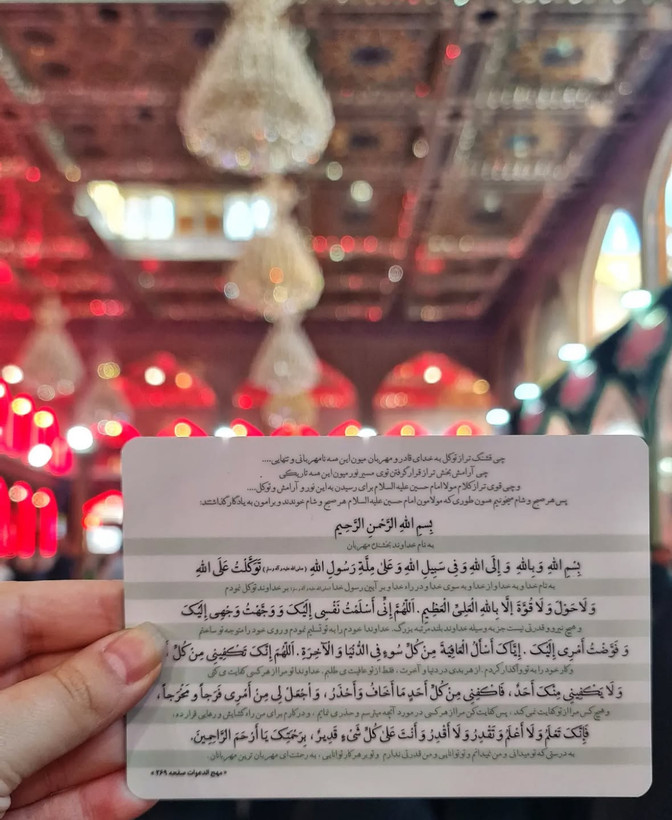 چی قشنگ تر از توکل به خدای قادر و مهربان میون این همه نامهربانی و تنهایی....
چی آرامش بخش تر از قرار گرفتن توی مسیر نور میون این همه تاریکی
و چی قوی تر از کلام مولا امام حسین علیه السلام برای رسیدن به این نور و آرامش و توکل....
پس هر صبح و شام میخونیم همون طوری که مولامون امام حسین علیه السلام هر صبح و شام خوندند و برامون به یادگار گذاشتند:
بِسمِ اللهِ الرَّحمنِ الرَّحیمِ
به نام خداوند بخشنده مهربان
بِسْمِ اللهِ وَ بِاللهِ وَ إِلَی اللهِ وَ فِی سَبِیلِ اللهِ وَ عَلیٰ مِلَّةِ رَسُولِ اللهِ تَوَکَّلْتُ عَلَی اللهِ
به نام خدا و به خدا و از خدا و به سوی خدا و در راه خدا و بر آیین رسول خدا بر خداوند توکل نمودم
وَ لَا حَوْلَ وَ لَا قُوَّةَ إِلَّا بِاللهِ الْعَلِیِّ الْعَظِیمِ. اَللّهُمَّ إِنِّی أَسْلَمْتُ نَفْسِی إِلَیْکَ وَ وَجَّهْتُ وَجْهِی إِلَیْکَ
و هیچ نیرو و قدرتی نیست جز به وسیله خداوند بلند مرتبه بزرگ. خداوندا خودم را به تو تسلیم نمودم و روی خود را متوجه تو ساختم
وَ فَوَّضْتُ أَمْرِی إِلَیْکَ. إِیَّاکَ أَسْأَلُ الْعَافِیَةَ مِنْ کُلِّ سُوءٍ فِی الدُّنْیَا وَ الْآخِرَةِ. اَللّهُمَّ إِنَّکَ تَکْفِینِی مِنْ کُلِّ
وکار خود را به تو واگذار کردم. از هر بدی در دنیا و آخرت، فقط از تو عافیت می طلبم. خداوندا تو مرا از هر کسی کفایت می کنی
وَ لَا یَکْفِینِی مِنْکَ أَحَدٌ، فَاکْفِنِی مِنْ کُلِّ أَحَدٍ مَا أَخَافُ وَ أَحْذَرُ، وَ اجْعَلْ لِی مِنْ أَمْرِی فَرَجاً وَ مَخْرَجاً،
و هیچ کس مرا از تو کفایت نمی کند. پس کفایت کن مرا از هر کسی در مورد آنچه میترسم و حذر می نمایم. و در کارم برای من راه گشایش و رهایی قرار ده.
فَإِنَّکَ تَعْلَمُ وَ لَا أَعْلَمُ وَ تَقْدِرُ وَ لَا أَقْدِرُ وَ أَنْتَ عَلیٰ کُلِّ شَیْءٍ قَدِیرٌ، بِرَحْمَتِکَ یَا أَرْحَمَ الرَّاحِمِینَ.
به درستی که تو میدانی و من نمیدانم و تو توانایی و من قدرتی ندارم و تو بر هر کار توانایی، به رحمتت ای مهربان ترین مهربانان.
«مهج الدعوات صفحه ۲۶۹»